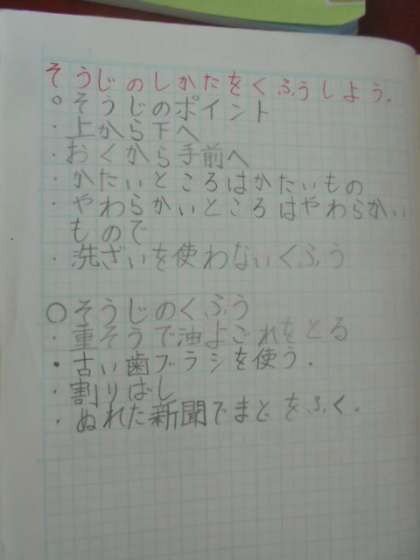 そうじのしかたをくふうしよう.
○そうじのポイント
・上から下へ
・おくから手前へ
・かたいところはかたいもの
・やわらかいところはやわらかい
もので
・洗ざいを使わないくふう
○そうじのくふう
・重そうで油よごれをとる
・古い歯ブラシを使う.
・割りばし
・ぬれた新聞でまどをふく.